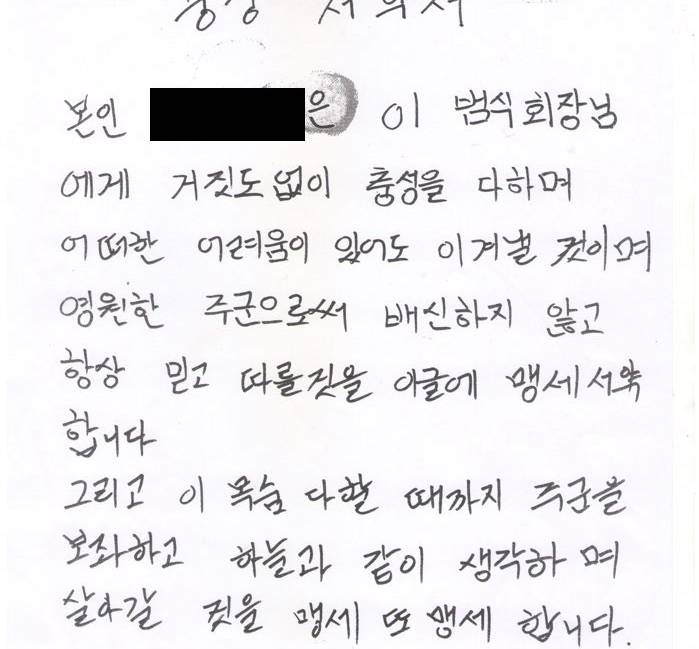 충성 서약서
본인 은 이 범식회장님
에게 거짓도없이 충성을 다하며
어떠한 어려움이 있어도 이겨낼 것이며
영원한 주군으로써 배신하지 않고
항상 믿고 따를것을 이글에 맹세서약
합니다
그리고 이 목숨 다할 때까지 주군을
보좌하고 하늘과 같이 생각하며
살아갈 것을 맹세 또 맹세 합니다.